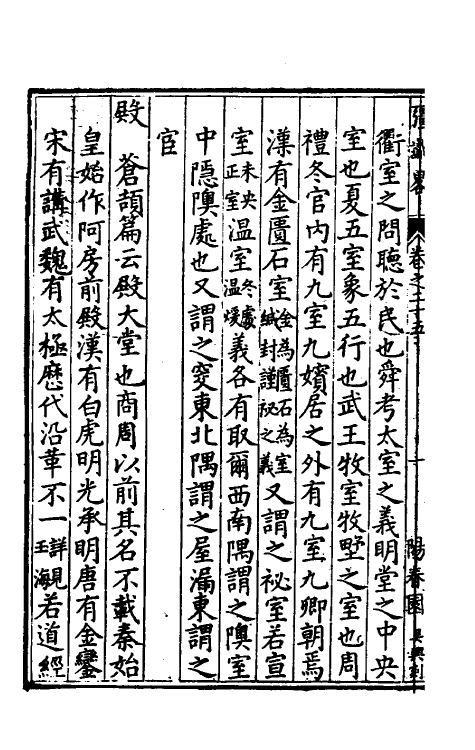 卷之二十五
十
陽春園
衢室之問聽於民也舜考太室之義明堂之中央
室也夏五室象五行也武王牧室牧墅之室也周
禮冬官内有九室九嬪居之外有九室九卿朝焉
漢有金匱石室金為匱石為室緘封謹祕之義又謂之祕室若宣
室未央正室溫室冬處溫煖義各有取爾西南隅謂之隩室
中隱隩處也又謂之窔東北隅謂之屋漏東謂之
宧
殿　蒼頡篇云殿大堂也商周以前其名不載秦始
皇始作阿房前殿漢有白虎明光承明唐有金鑾
宋有講武魏有太極歷代沿革不一詳見玉海若道經